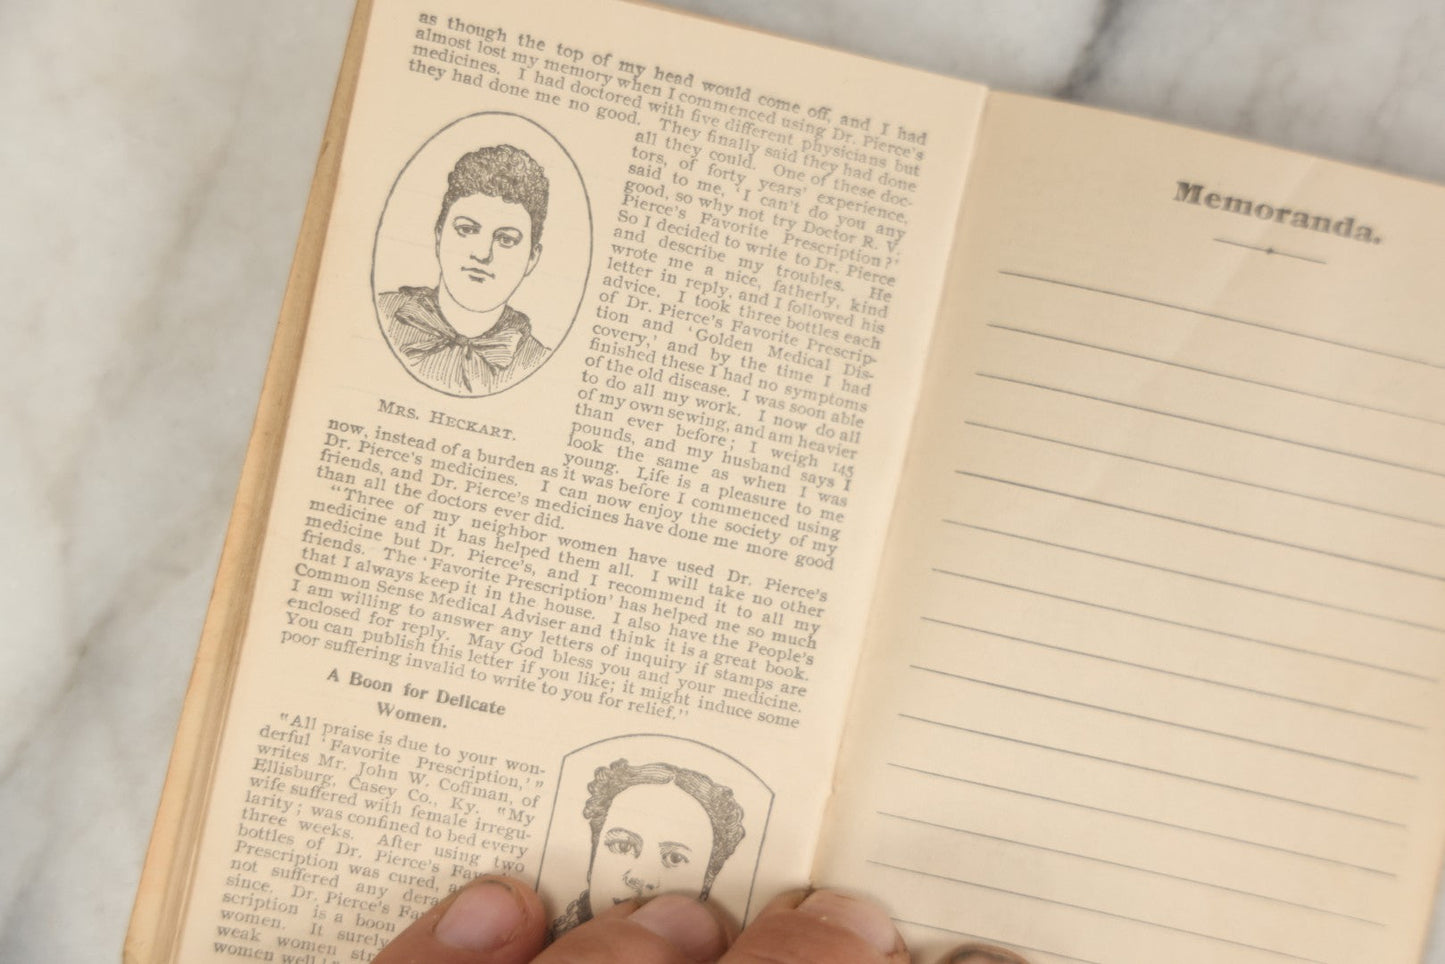 as though the top of my head would come off, and I had
almost lost my memory when I commenced using Dr. Pierce's
medicines. I had doctored with five different physicians but
they had done me no good. They finally said they had done
all they could. One of these doc-
tors, of forty years' experience,
said to me, 'I can't do you any
good, so why not try Doctor R. V.
Pierce's Favorite Prescription?'
So I decided to write to Dr. Pierce
and describe my troubles. He
wrote me a nice, fatherly, kind
letter in reply, and I followed his
advice. I took three bottles each
of Dr. Pierce's Favorite Prescrip-
tion and 'Golden Medical Dis-
covery,' and by the time I had
finished these I had no symptoms
of the old disease. I was soon able
to do all my work. I now do all
of my own sewing, and am heavier
than ever before; I weigh 145
pounds, and my husband says I
look the same as when I was
young. Life is a pleasure to me
MRS. HECKART.
now, instead of a burden as it was before I commenced using
Dr. Pierce's medicines. I can now enjoy the society of my
friends, and Dr. Pierce's medicines have done me more good
than all the doctors ever did.
"Three of my neighbor women have used Dr. Pierce's
medicine and it has helped them all. I will take no other
medicine but Dr. Pierce's, and I recommend it to all my
friends. The 'Favorite Prescription' has helped me so much
that I always keep it in the house. I also have the People's
Common Sense Medical Adviser and think it is a great book.
I am willing to answer any letters of inquiry if stamps are
enclosed for reply. May God bless you and your medicine.
You can publish this letter if you like; it might induce some
poor suffering invalid to write to you for relief."
A Boon for Delicate
Women.
"All praise is due to your won-
derful 'Favorite Prescription,'"
writes Mr. John W. Coffman, of
Ellisburg, Casey Co., Ky. "My
wife suffered with female irregu-
larity; was confined to bed every
three weeks. After using two
bottles of Dr. Pierce's
Prescription was cured,
not suffered any
since. Dr. Pierce's
scription is a boon
women. It surely
weak women
women well!"
Memoranda.